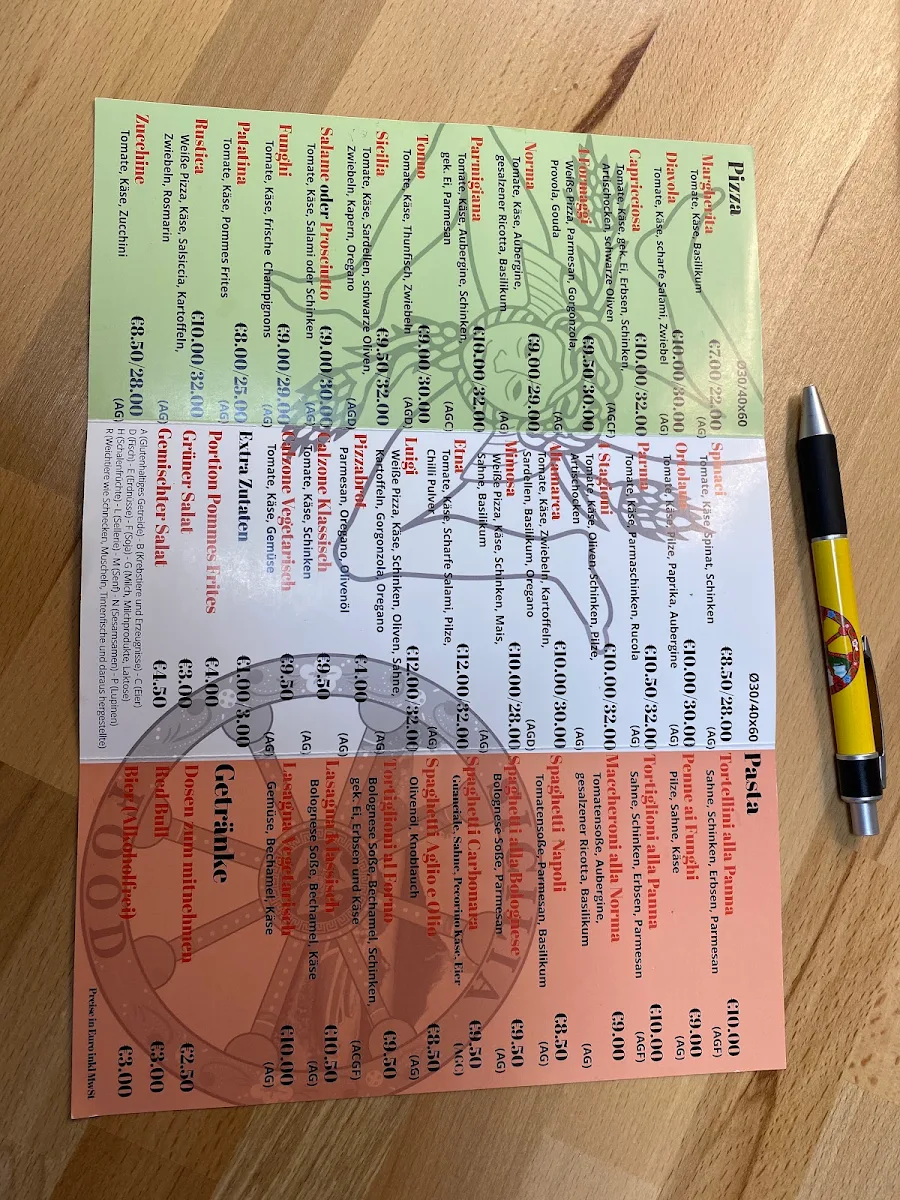 Pizza
Ø30/40x60
Margherita
€7.00/22.00
Tomate, Käse, Basilikum
(AG)
Diavola
€10.00/30.00
Tomate, Käse, scharfe Salami, Zwiebel
(AG)
Capricciosa
€10.00/32.00
Tomate, Käse, gek. Ei, Erbsen, Schinken,
Artischocken, schwarze Oliven
(AGCF)
Formaggi
€9.50/30.00
Weiße Pizza, Parmesan, Gorgonzola,
Provola, Gouda
(AG)
Norma
€9.00/29.00
Tomate, Käse, Aubergine,
gesalzener Ricotta, Basilikum
(AG)
Parmigiana
€10.00/32.00
Tomate, Käse, Aubergine, Schinken,
gek. Ei, Parmesan
(AGC)
Tonno
€9.00/30.00
Tomate, Käse, Thunfisch, Zwiebeln
(AGD)
Sicilia
€9.50/32.00
Tomate, Käse, Sardellen, schwarze Oliven,
Zwiebeln, Kapern, Oregano
(AGD)
Salame oder Prosciutto
€9.00/30.00
Tomate, Käse, Salami oder Schinken
(AG)
Funghi
€9.00/29.00
Tomate, Käse, frische Champignons
(AG)
Patatina
€8.00/25.00
Tomate, Käse, Pommes Frites
(AG)
Rustica
€10.00/32.00
Weiße Pizza, Käse, Salsiccia, Kartoffeln,
Zwiebeln, Rosmarin
(AG)
Zucchine
€8.50/28.00
Tomate, Käse, Zucchini
(AG)
Ø30/40x60
Spinaci
€8.50/28.00
Tomate, Käse, Spinat, Schinken
(AG)
Ortolana
€10.00/30.00
Tomate, Käse, Pilze, Paprika, Aubergine
(AG)
Parma
€10.50/32.00
Tomate, Käse, Parmaschinken, Rucola
(AG)
4 Stagioni
€10.00/32.00
Tomate, Käse, Oliven, Schinken, Pilze,
Artischocken
(AG)
€10.00/30.00
Tomate, Käse, Zwiebeln, Kartoffeln,
Sardellen, Basilikum, Oregano
(AGD)
Mimosa
€10.00/28.00
Weiße Pizza, Käse, Schinken, Mais,
Sahne, Basilikum
(AG)
Etna
€12.00/32.00
Tomate, Käse, Scharfe Salami, Pilze,
Chilli Pulver
(AG)
Luigi
€12.00/32.00
Weiße Pizza, Käse, Schinken, Oliven, Sahne,
Kartoffeln, Gorgonzola, Oregano
(AG)
Pizzabrot
€4.00
Parmesan, Oregano, Olivenöl
(AG)
Calzone Klassisch
€9.50
Tomate, Käse, Schinken
(AG)
Calzone Vegetarisch
€9.50
Tomate, Käse, Gemüse
(AG)
Extra Zutaten
€1.00/3.00
Portion Pommes Frites
€4.00
Grüner Salat
€3.00
Gemischter Salat
€4.50
A (Glutenhaltiges Getreide) - B (Krebstiere und Erzeugnisse) - C (Eier)
D (Fisch) - E (Erdnüsse) - F (Soja) - G (Milch, Milchprodukte, Laktose)
H (Schalenfrüchte) - L (Sellerie) - M (Senf) - N (Sesamsamen) - P (Lupinen)
R (Weichtiere wie Schnecken, Muscheln, Tintenfische und daraus hergestellte)
Pasta
Tortellini alla Panna
€10.00
Sahne, Schinken, Erbsen, Parmesan
(AGF)
Penne ai Funghi
€9.00
Pilze, Sahne, Käse
(AG)
Tortiglioni alla Panna
€10.00
Sahne, Schinken, Erbsen, Parmesan
(AGF)
Maccheroni alla Norma
€9.00
Tomatensoße, Aubergine,
gesalzener Ricotta, Basilikum
(AG)
Spaghetti Napoli
€8.50
Tomatensoße, Parmesan, Basilikum
(AG)
Spaghetti alla Bolognese
€9.50
Bolognese Soße, Parmesan
(AG)
Spaghetti Carbonara
€9.50
Guanciale, Sahne, Pecorino Käse, Eier
(AGC)
Spaghetti Aglio e Olio
€8.50
Olivenöl, Knoblauch
(AG)
Tortiglioni al Forno
€9.50
Bolognese Soße, Bechamel, Schinken,
gek. Ei, Erbsen und Käse
(ACGF)
Lasagna Klassisch
€10.50
Bolognese Soße, Bechamel, Käse
(AG)
Lasagna Vegetarisch
€10.00
Gemüse, Bechamel, Käse
(AG)
Getränke
Dosen zum mitnehmen
€2.50
Red Bull
€3.00
Bier (Alkoholfrei)
€3.00
Preise in Euro inkl MwSt
FOOD